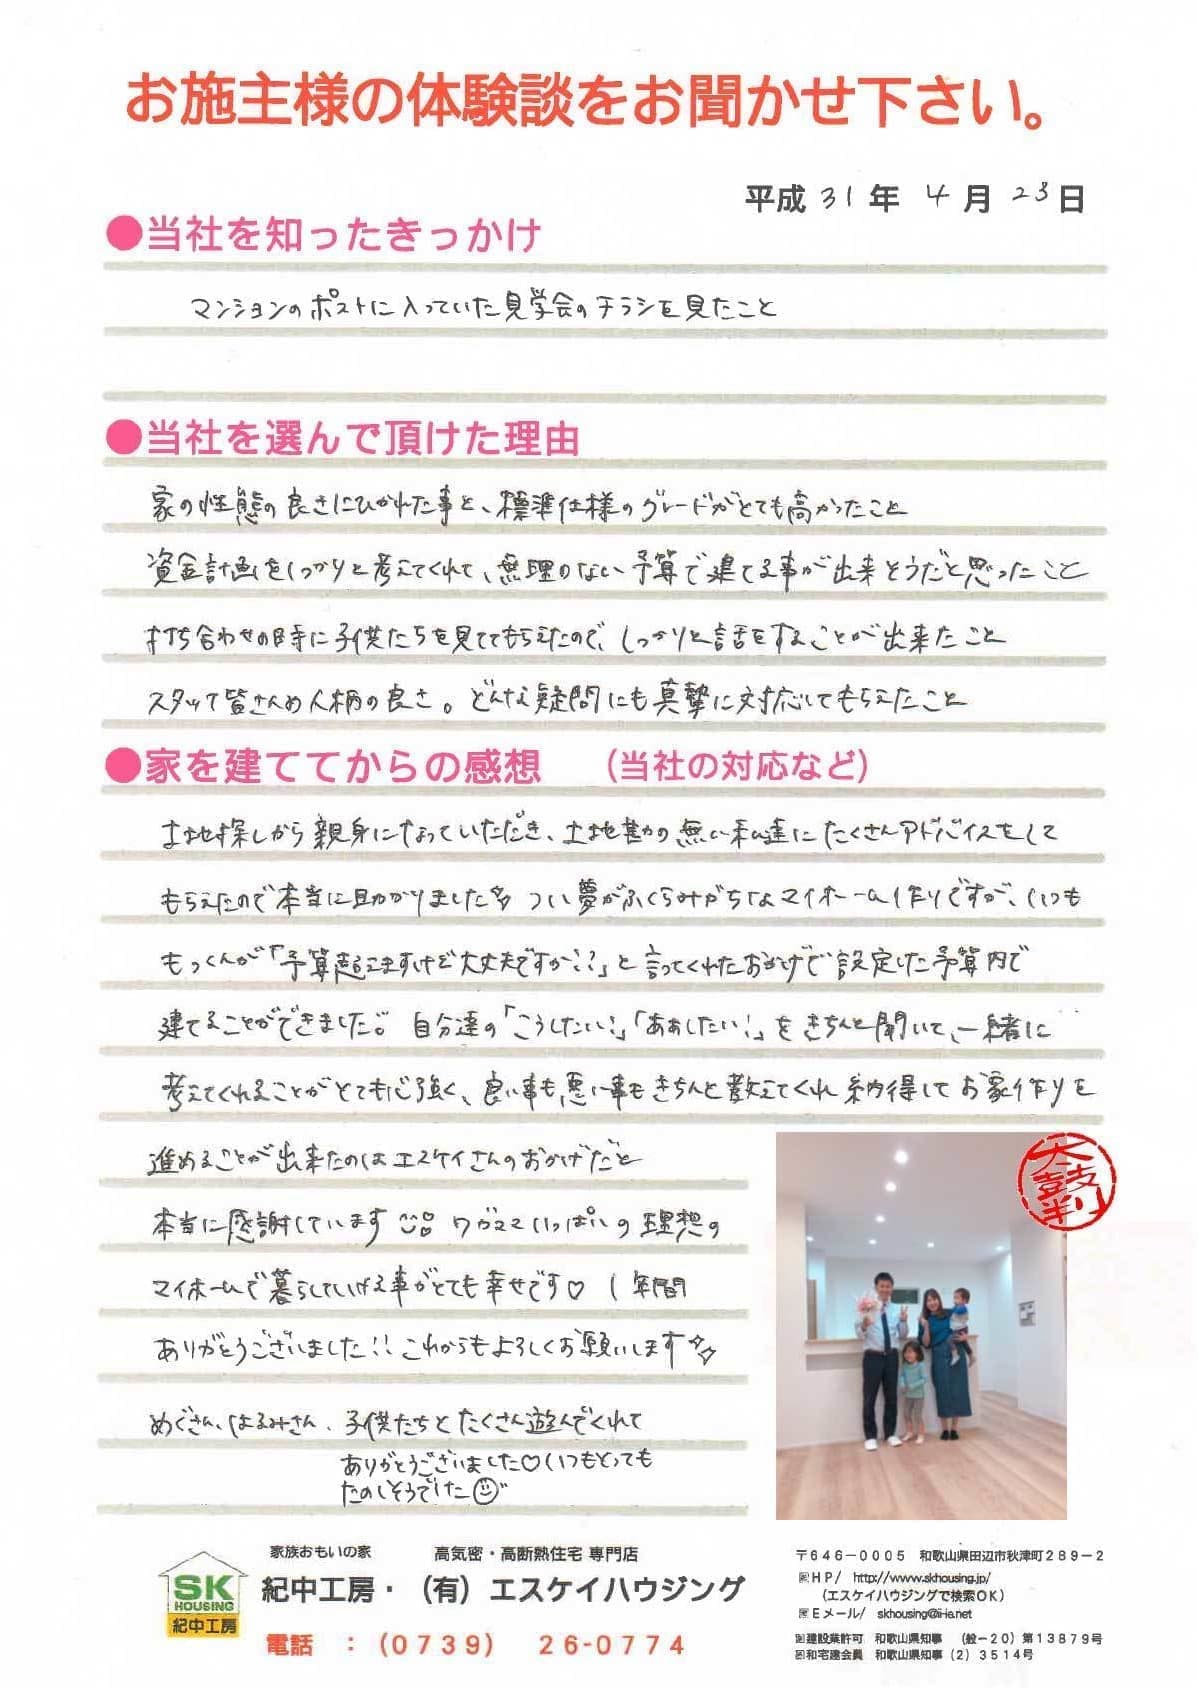 お施主様の体験談をお聞かせ下さい。
平成 31 年 4 月 23 日
●当社を知ったきっかけ
マンションのポストに入っていた見学会のチラシを見たこと
●当社を選んで頂けた理由
家の性態の良さにひかれた事と、標準仕様のグレードがとても高かったこと
資金計画をしっかりと考えてくれて、無理のない予算で建てる事が出来そうだと思ったこと
打ち合わせの時に子供たちを見ててもらえたので、しっかりと話をすることが出来たこと
スタッフ皆さんの人柄の良さ。どんな疑問にも真摯に対応してもらえたこと
●家を建ててからの感想 （当社の対応など）
土地探しから親身になっていただき、土地勘の無い私達にたくさんアドバイスをして
もらえたので本当に助かりました つい夢がふくらみがちなマイホーム作りですが、いつも
もっくんが「予算超えますけど大丈夫ですか??」と言ってくれたおかげで設定した予算内で
建てることができました。 自分達の「こうしたい!」「ああしたい!」をきちんと聞いて、一緒に
考えてくれることがとても心強く、良い事も悪い事もきちんと教えてくれ納得してお家作りを
進めることが出来たのはエスケイさんのおかげだと
本当に感謝しています ワガママいっぱいの理想の
マイホームで暮らしていける事がとても幸せです♡ 1年間
ありがとうございました!! これからもよろしくお願いします
めぐさん、はるみさん、子供たちとたくさん遊んでくれて
ありがとうございました♡いつもとっても
たのしそうでした
太鼓判
SK
HOUSING
紀中工房
家族おもいの家 高気密・高断熱住宅 専門店
紀中工房・（有）エスケイハウジング
電話 ：（０７３９） ２６-０７７４
〒６４６－０００５ 和歌山県田辺市秋津町２８９－２
ＨＰ/ http://www.skhousing.jp/
（エスケイハウジングで検索ＯＫ）
Ｅメール/ skhousing@ii-ie.net
建設業許可 和歌山県知事 （般－20）第１３８７９号
和宅建会員 和歌山県知事（2）３５１４号